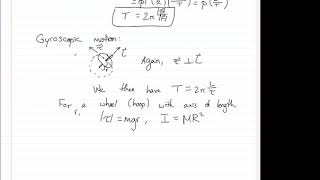 T = 2π
Gyroscopic motion:
L
Again, τ ⊥ L
We then have T = 2π L/τ
For a wheel (hoop) with axis of length
r, |τ| = mgr, I = MR²